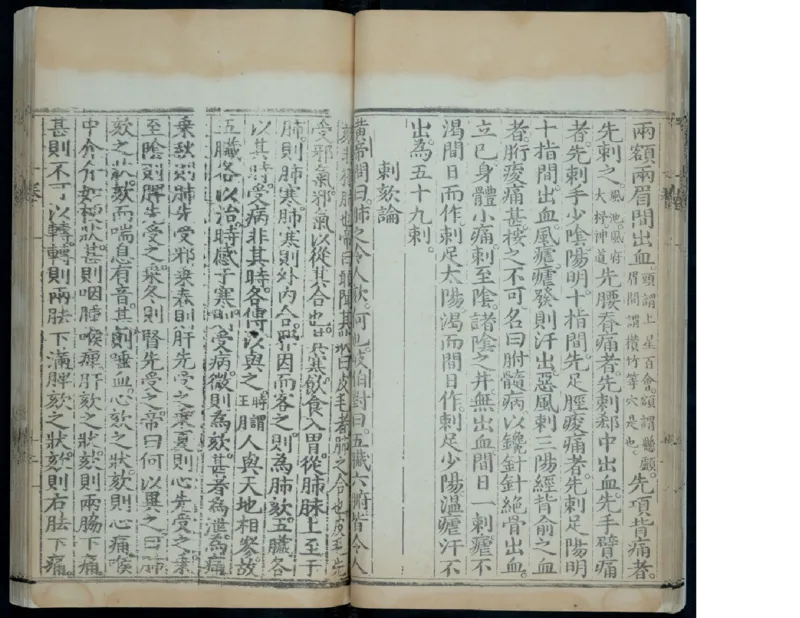 兩額兩眉間出血。頭謂上星百會。額謂懸顱。眉間謂攢竹等穴是也。先項背痛者。
先刺之。風池風府大杼神道先腰脊痛者。先刺郄中出血。先手臂痛
者。先刺手少陰陽明。十指間。先足脛痠痛者。先刺足陽明
十指間出血。風瘧。瘧發則汗出。惡風。刺三陽經背俞之血
者。胻痠痛甚。按之不可。名曰胕髓病。以鑱針針絕骨出血。
立已。身體小痛。刺至陰。諸陰之井無出血。間日一刺。瘧不
渴間日而作。刺足太陽。渴而間日作。刺足少陽。溫瘧汗不
出。為五十九刺。
刺欬論
黃帝問曰。肺之令人欬。何也。岐伯對曰。五臟六腑皆令人
欬。非獨肺也。帝曰。願聞其狀。曰皮毛者肺之合也。皮毛先
受邪氣。邪氣以從其合也。其寒飲食入胃。從肺脉上至于
肺。則肺寒。肺寒則外內合。邪因而客之。則為肺欬。五臟各
以其時受病。非其時。各傳以與之。時謂王月人與天地相參。故
五臟各以治。時感于寒。則受病。微則為欬。甚者為泄為痛。
乘秋則肺先受邪。乘春則肝先受之。乘夏則心先受之。乘
至陰則脾先受之。乘冬則腎先受之。帝曰何以異之。曰肺
欬之狀。欬而喘息有音。甚則唾血。心欬之狀。欬則心痛。喉
中介介如梗狀。甚則咽腫喉痺。肝欬之狀。欬則兩脇下痛。
甚則不可以轉。轉則兩胠下滿。脾欬之狀。欬則右胠下痛。